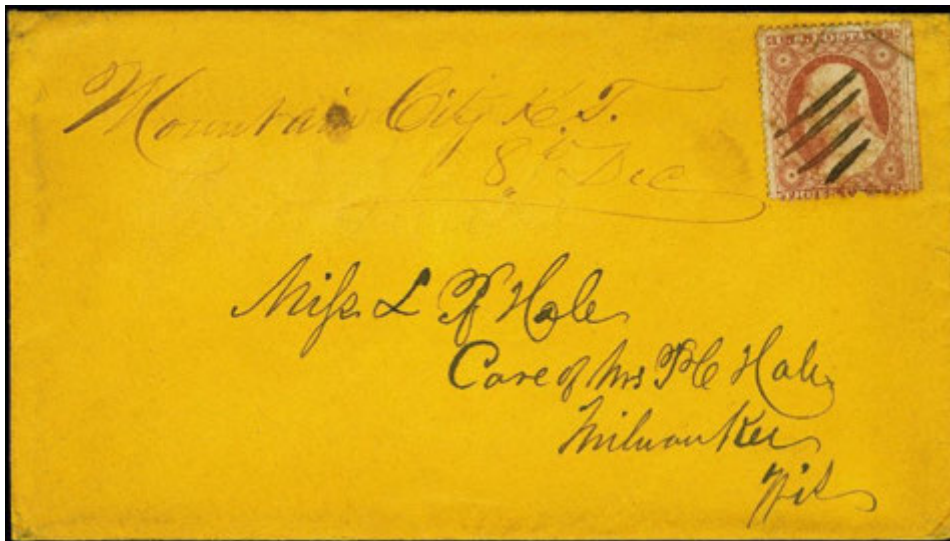 Mountain City K.T.
8th Dec
Miss L Hale
Care of Mrs Hale
Milwaukee
Wis